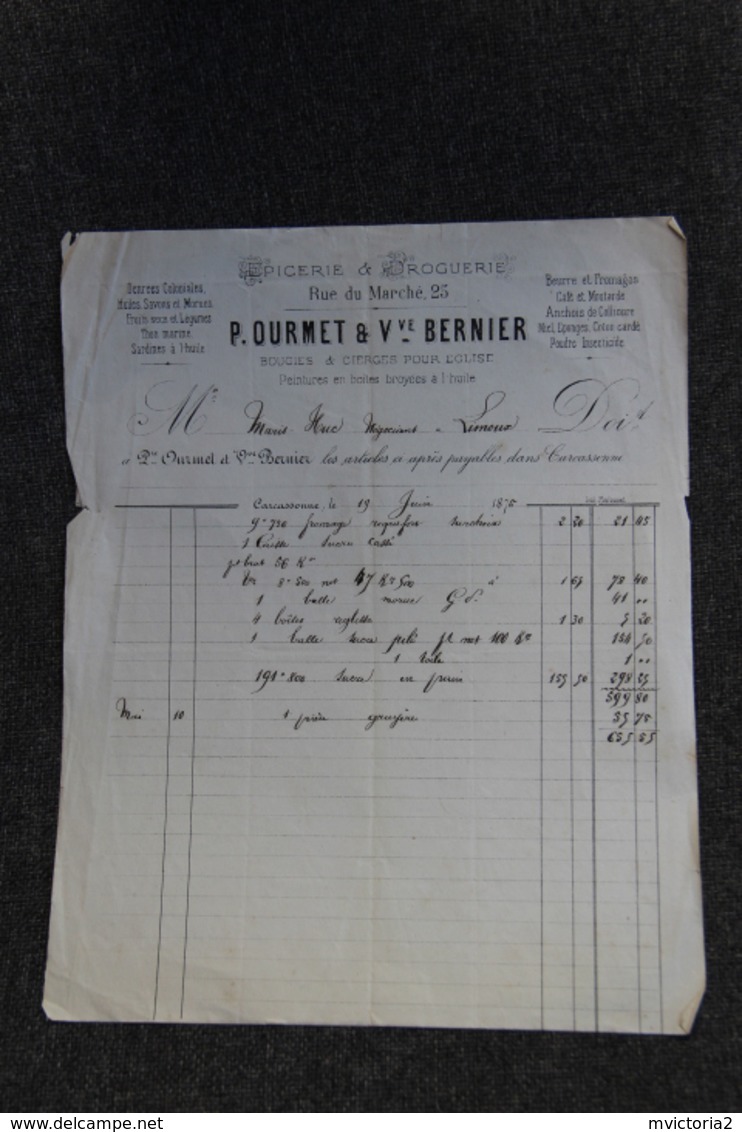 EPICERIE & DROGUERIE
Rue du Marché, 25
P. OURMET & Vve BERNIER
BOUGIES & CIERGES POUR L'EGLISE
Peintures en boites broyées à l'huile
Denrées Coloniales,
Huiles, Savons et Morues
Fruits secs et Légumes
Thon mariné
Sardines à l'huile
Beurre et Fromages
Café et Moutarde
Anchois de Collioure
Miel, Eponges, Coton cardé
Poudre Insecticide
Mr Huc Négociant à Limoux Doit
à P. Ourmet & Vve Bernier les articles ci après payables dans Carcassonne
Carcassonne, le 19 Juin 187
fromage roquefort 2 20 21 45
1 Caisse sucre cassé
pt brut 56 Ko
net 47 Ko 500 à 1 65 78 40
1 balle morue 41 "
4 boîtes 1 30 5 20
1 balle sucre pilé pt net 100 Ko 154 50
1 toile 1 "
191 k 800 sucre en pain 155 50 298 25
599 80
Mai 10 1 pièce gruyère 55 75
655 55
delcampe.net
mvictoria2